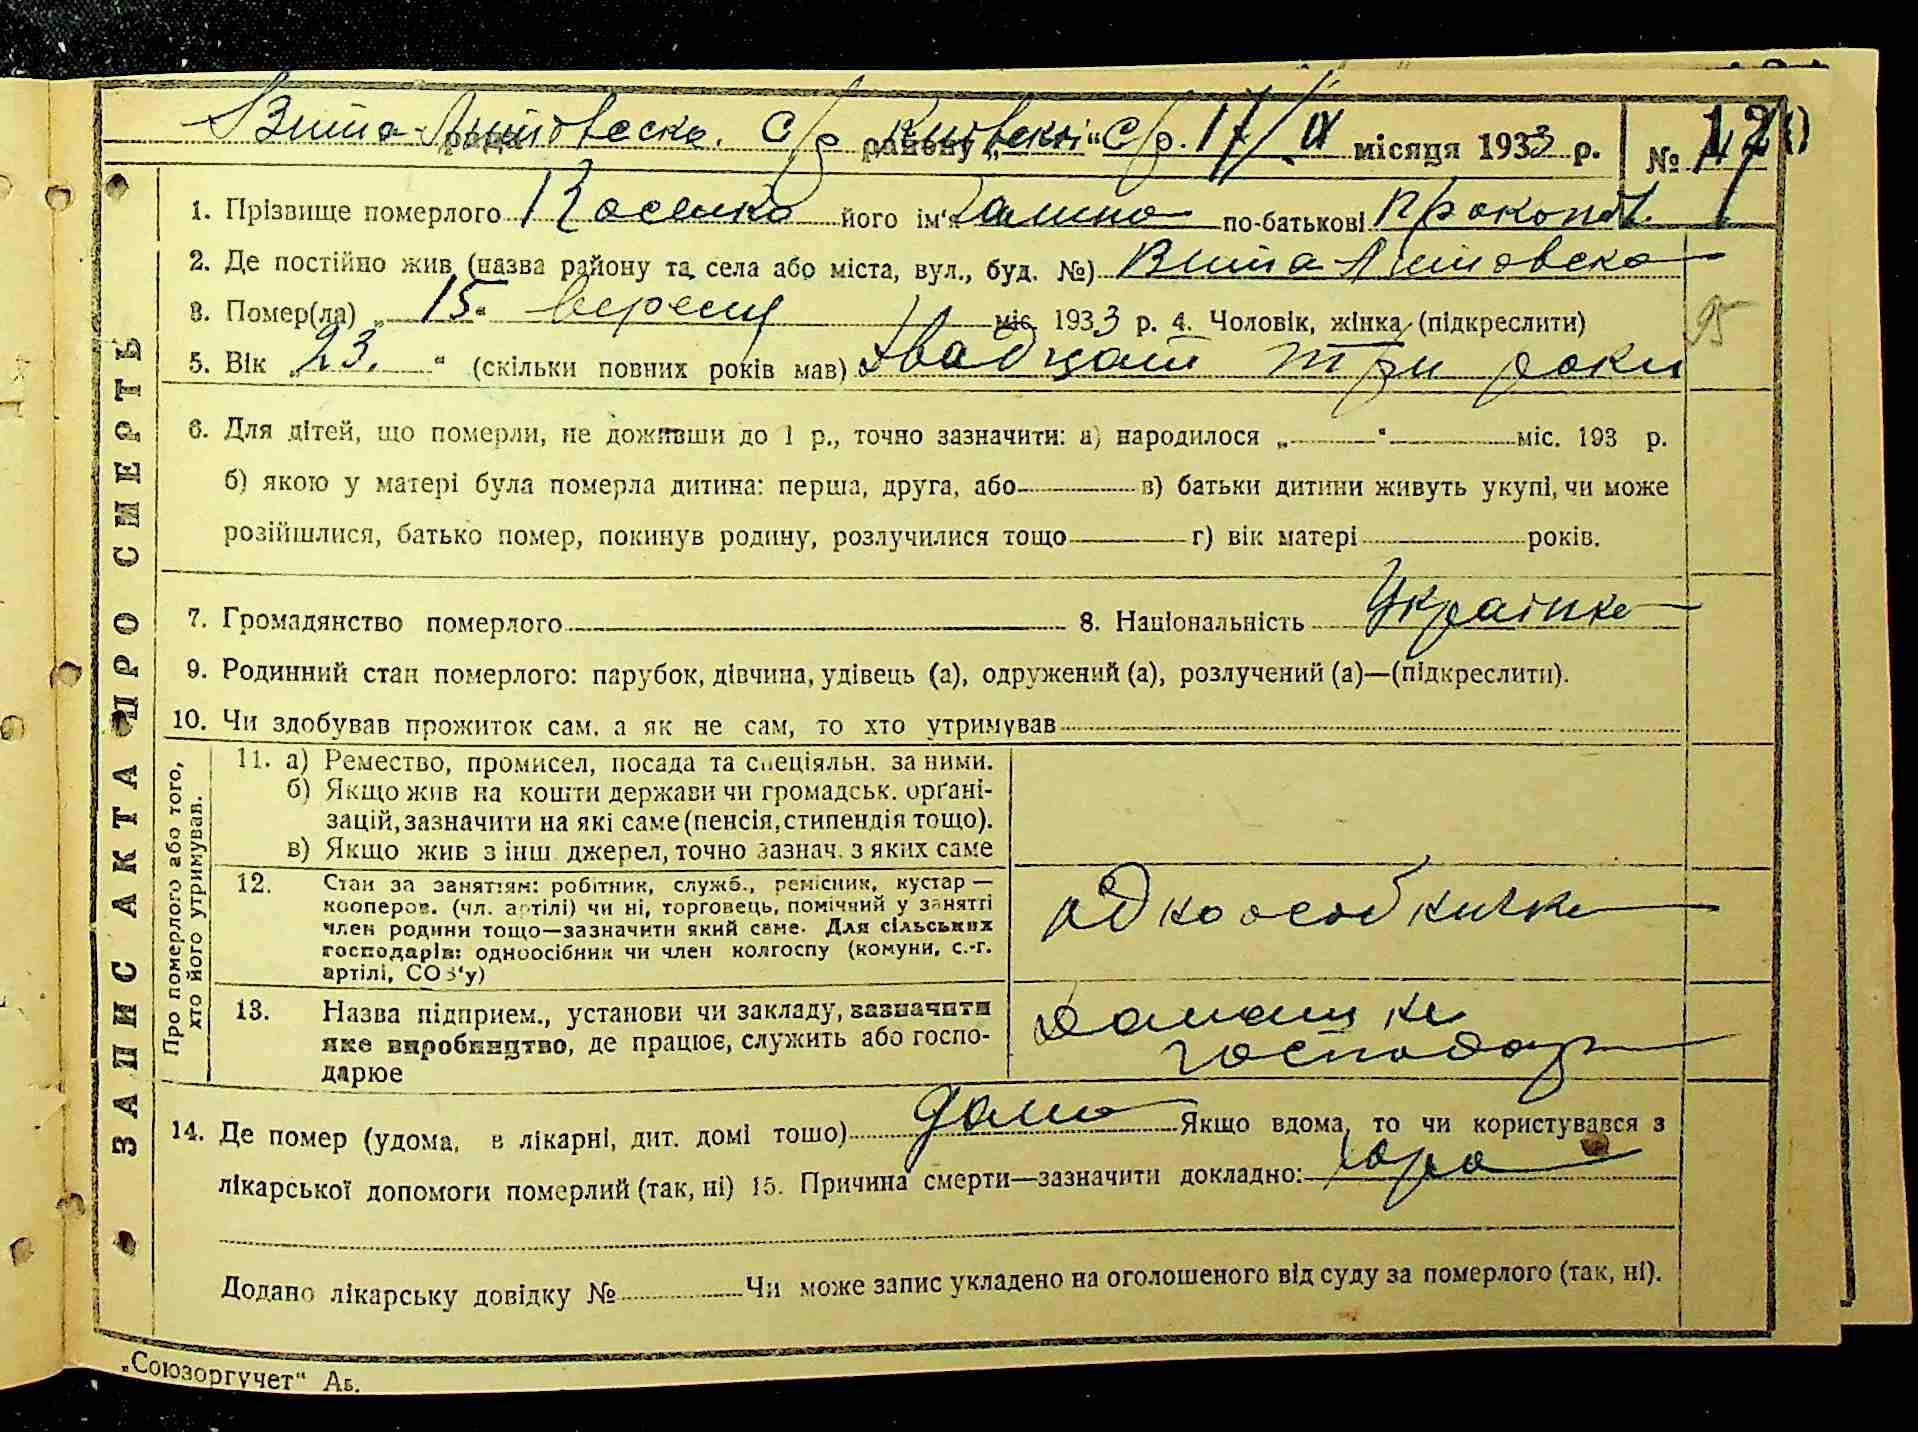 Вита-Литовська С/р району „Київської“ С/р. 17/IX місяця 1933 р. № 120
1. Прізвище померлого Косенко його ім'я Галина по-батькові Прокопов.
2. Де постійно жив (назва району та села або міста, вул., буд. №) Вита-Литовска
3. Помер(ла) „15“ вересня міс. 1933 р. 4. Чоловік, жінка (підкреслити)
95
5. Вік „23.“ (скільки повних років мав) двадцать три роки
6. Для дітей, що померли, не доживши до 1 р., точно зазначити: а) народилося „ “ міс. 193 р.
б) якою у матері була померла дитина: перша, друга, або в) батьки дитини живуть укупі, чи може
розійшлися, батько помер, покинув родину, розлучилися тощо г) вік матері років.
7. Громадянство померлого 8. Національність Українка
9. Родинний стан померлого: парубок, дівчина, удівець (а), одружений (а), розлучений (а)—(підкреслити).
10. Чи здобував прожиток сам, а як не сам, то хто утримував
11. а) Ремество, промисел, посада та спеціяльн. за ними.
б) Якщо жив на кошти держави чи громадськ. орґані-
зацій, зазначити на які саме (пенсія, стипендія тощо).
в) Якщо жив з інш. джерел, точно зазнач. з яких саме
12. Стан за заняттям: робітник, служб., ремісник, кустар —
кооперов. (чл. артілі) чи ні, торговець, помічний у занятті
член родини тощо—зазначити який саме. Для сільських
господарів: одноосібник чи член колгоспу (комуни, с.-г.
артілі, СОЗ'у)
одноособничка
13. Назва підприєм., установи чи закладу, зазначити
яке виробництво, де працює, служить або госпо-
дарює
домашнє
господар
14. Де помер (удома, в лікарні, дит. домі тощо) дома Якщо вдома, то чи користувався з
лікарської допомоги померлий (так, ні) 15. Причина смерти—зазначити докладно:
Додано лікарську довідку № Чи може запис укладено на оголошеного від суду за померлого (так, ні).
ЗАПИС АКТА ПРО СМЕРТЬ
Про померлого або того,
хто його утримував.
„Союзоргучет“ Аб.